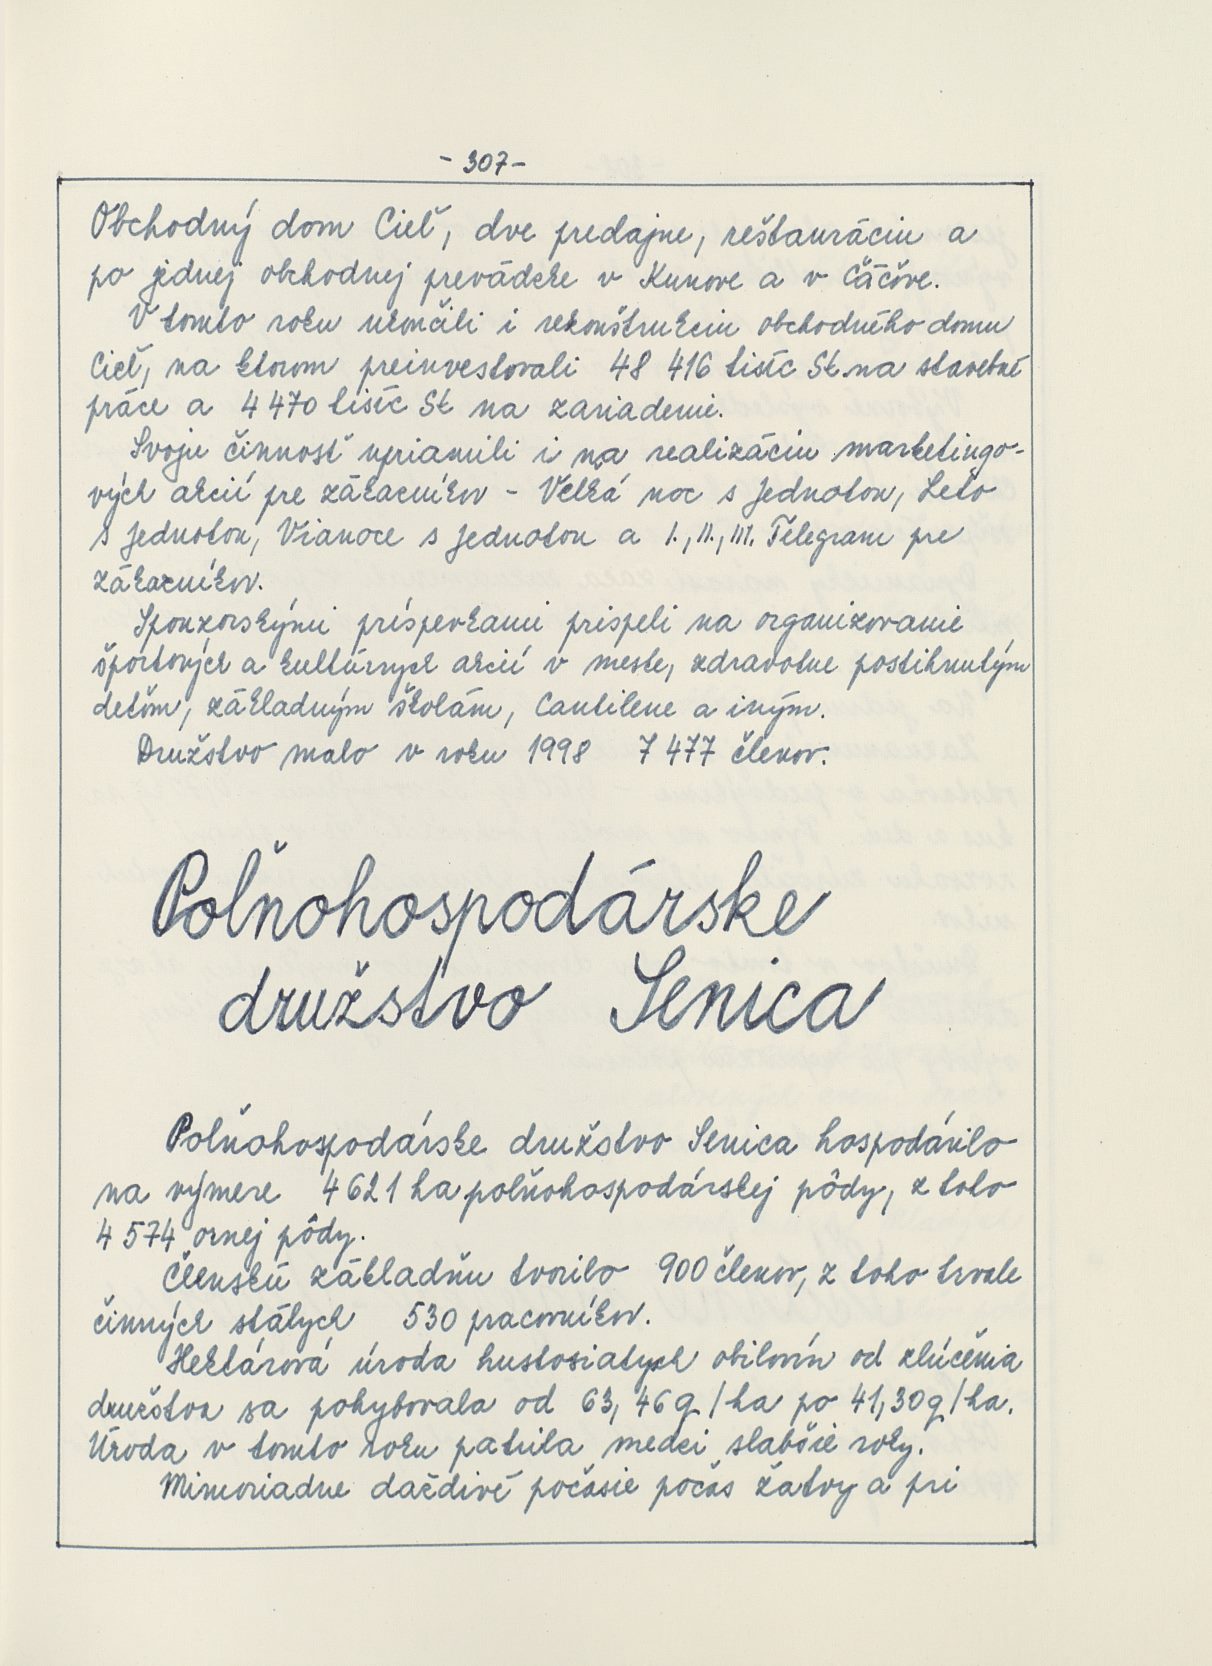 - 307 -
Obchodný dom Cieľ, dve predajne, reštauráciu a
po jednej obchodnej prevádzke v Kunove a v Čáčove.
V tomto roku ukončili i rekonštrukciu obchodného domu
Cieľ, na ktorom preinvestovali 48 416 tisíc Sk na stavebné
práce a 4 470 tisíc Sk na zariadenie.
Svoju činnosť upriamili i na realizáciu marketingo-
vých akcií pre zákazníkov - Veľká noc s Jednotou, Leto
s Jednotou, Vianoce s Jednotou a I., II., III. Telegram pre
zákazníkov.
Sponzorskými príspevkami prispeli na organizovanie
športových a kultúrnych akcií v meste, zdravotne postihnutým
deťom, základným školám, Cantilene a iným.
Družstvo malo v roku 1998 7 477 členov.
Poľnohospodárske
družstvo Senica
Poľnohospodárske družstvo Senica hospodárilo
na výmere 4 621 ha poľnohospodárskej pôdy, z toho
4 574 ornej pôdy.
Členskú základňu tvorilo 900 členov, z toho trvale
činných stálych 530 pracovníkov.
Hektárová úroda hustosiatych obilovín od zlúčenia
družstva sa pohybovala od 63,46 q/ha po 41,30 q/ha.
Úroda v tomto roku patrila medzi slabšie roky.
Mimoriadne daždivé počasie počas žatvy a pri